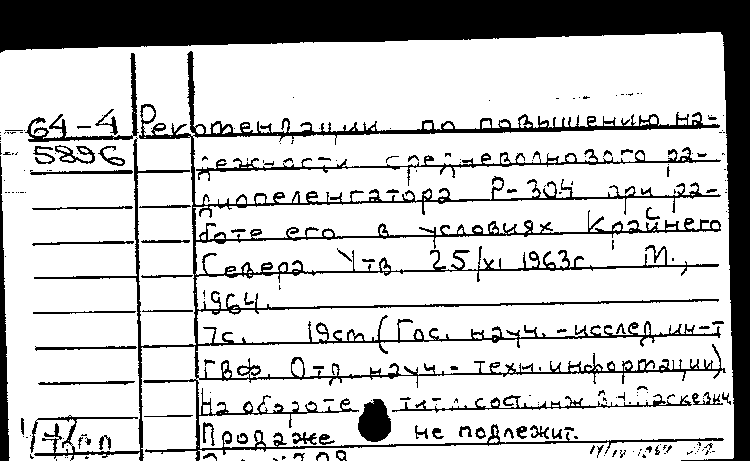 64-4 Рекомендации по повышению на-
5896 дежности средневолнового ра-
диопеленгатора Р-304 при ра-
боте его в условиях Крайнего
Севера. Утв. 25/XI 1963г. М.,
1964.
7с. 19см. (Гос. науч.-исслед. ин-т
ГВФ. Отд. науч.-техн. информации).
На обороте тит. л. сост. инж. В.Н. Паскевич
Продаже не подлежит.